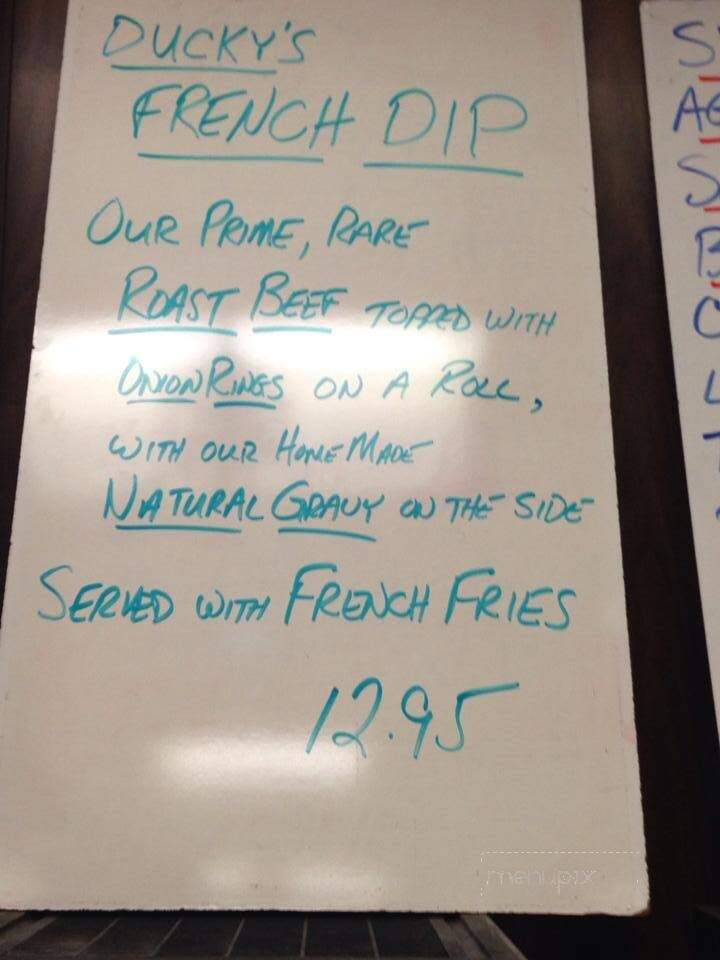 DUCKY'S
FRENCH DIP
OUR PRIME, RARE
ROAST BEEF TOPPED WITH
ONION RINGS ON A ROLL,
WITH OUR HOMEMADE
NATURAL GRAVY ON THE SIDE
SERVED WITH FRENCH FRIES
12.95
menupix